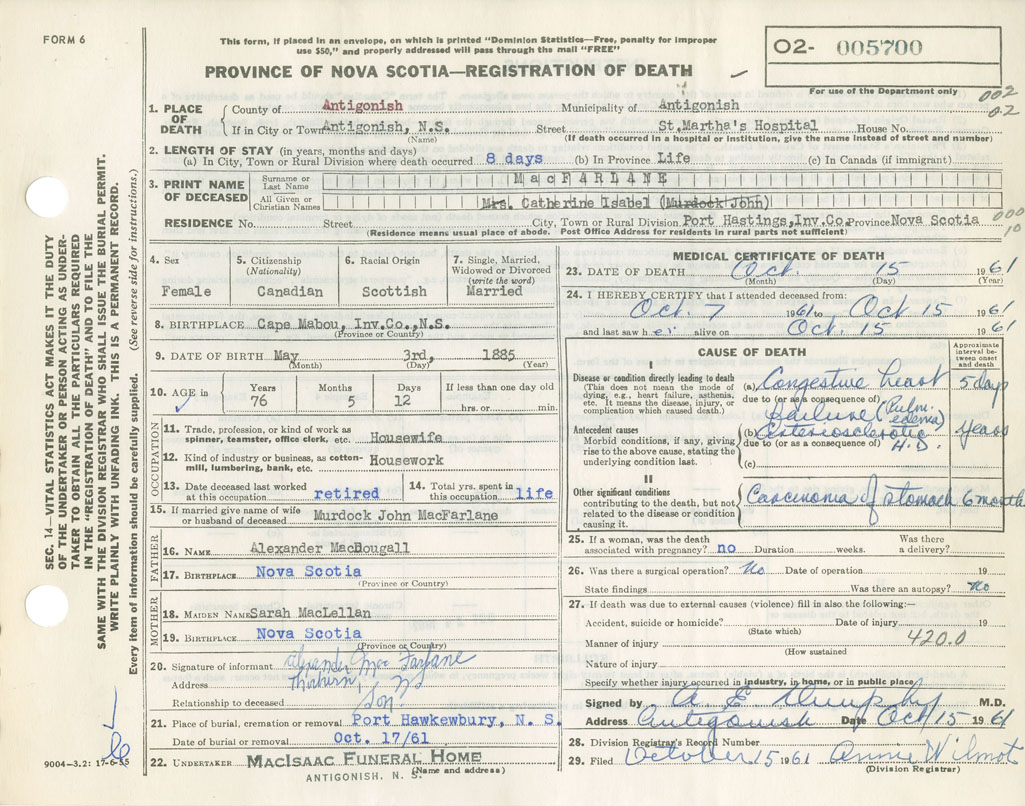 FORM 6
This form, if placed in an envelope, on which is printed "Dominion Statistics—Free, penalty for improper
use $50," and properly addressed will pass through the mail "FREE"
PROVINCE OF NOVA SCOTIA—REGISTRATION OF DEATH
02- 005700
For use of the Department only
002
02
1. PLACE OF DEATH
County of Antigonish Municipality of Antigonish
If in City or Town Antigonish, N.S. Street St.Martha's Hospital House No.
(Name) (If death occurred in a hospital or institution, give the name instead of street and number)
2. LENGTH OF STAY (in years, months and days)
(a) In City, Town or Rural Division where death occurred 8 days (b) In Province Life (c) In Canada (if immigrant)
3. PRINT NAME OF DECEASED
Surname or Last Name MacFARLANE
All Given or Christian Names Mrs. Catherine Isabel (Murdock John)
RESIDENCE No. Street City, Town or Rural Division Port Hastings,Inv.Co. Province Nova Scotia
(Residence means usual place of abode. Post Office Address for residents in rural parts not sufficient)
000
10
4. Sex
Female
5. Citizenship
(Nationality)
Canadian
6. Racial Origin
Scottish
7. Single, Married,
Widowed or Divorced
(write the word)
Married
8. BIRTHPLACE Cape Mabou, Inv.Co.,N.S.
(Province or Country)
9. DATE OF BIRTH May 3rd, 1885
(Month) (Day) (Year)
10. AGE in
Years Months Days If less than one day old
76 5 12 hrs. or min.
OCCUPATION
11. Trade, profession, or kind of work as
spinner, teamster, office clerk, etc. Housewife
12. Kind of industry or business, as cotton-
mill, lumbering, bank, etc. Housework
13. Date deceased last worked
at this occupation retired
14. Total yrs. spent in
this occupation life
15. If married give name of wife
or husband of deceased Murdock John MacFarlane
FATHER
16. NAME Alexander MacDougall
17. BIRTHPLACE Nova Scotia
(Province or Country)
MOTHER
18. MAIDEN NAME Sarah MacLellan
19. BIRTHPLACE Nova Scotia
(Province or Country)
20. Signature of informant Alexander Mac Farlane
Address Thorburn, N S
Relationship to deceased Son
21. Place of burial, cremation or removal Port Hawkewbury, N. S.
Date of burial or removal Oct. 17/61
22. UNDERTAKER MACISAAC FUNERAL HOME
ANTIGONISH, N. S.
(Name and address)
MEDICAL CERTIFICATE OF DEATH
23. DATE OF DEATH Oct. 15 1961
(Month) (Day) (Year)
24. I HEREBY CERTIFY that I attended deceased from:
Oct. 7 1961 to Oct 15 1961
and last saw her alive on Oct. 15 1961
CAUSE OF DEATH
Approximate
interval be-
tween onset
and death
I
Disease or condition directly leading to death
(This does not mean the mode of
dying, e.g., heart failure, asthenia,
etc. It means the disease, injury, or
complication which caused death.)
(a) Congestive heart 5 day
due to (or as a consequence of)
failure (Pulm. edema)
Antecedent causes
Morbid conditions, if any, giving
rise to the above cause, stating the
underlying condition last.
(b) Arteriosclerotic years
due to (or as a consequence of) H.D.
(c)
II
Other significant conditions
contributing to the death, but not
related to the disease or condition
causing it.
Carcinoma of stomach 6 months
25. If a woman, was the death
associated with pregnancy? no Duration weeks. Was there
a delivery?
26. Was there a surgical operation? No Date of operation 19
State findings Was there an autopsy? No
27. If death was due to external causes (violence) fill in also the following:—
Accident, suicide or homicide? Date of injury 19
(State which)
Manner of injury 420.0
(How sustained
Nature of injury
Specify whether injury occurred in industry, in home, or in public place
Signed by A. E. Dumphy M.D.
Address Antigonish Date Oct 15 1961
28. Division Registrar's Record Number
29. Filed October 15 1961 Annie Wilmot
(Division Registrar)
SEC. 14—VITAL STATISTICS ACT MAKES IT THE DUTY
OF THE UNDERTAKER OR PERSON ACTING AS UNDER-
TAKER TO OBTAIN ALL THE PARTICULARS REQUIRED
IN THE "REGISTRATION OF DEATH" AND TO FILE THE
SAME WITH THE DIVISION REGISTRAR WHO SHALL ISSUE THE BURIAL PERMIT.
WRITE PLAINLY WITH UNFADING INK. THIS IS A PERMANENT RECORD.
Every item of information should be carefully supplied. (See reverse side for instructions.)
9004-3.2: 17-6-55